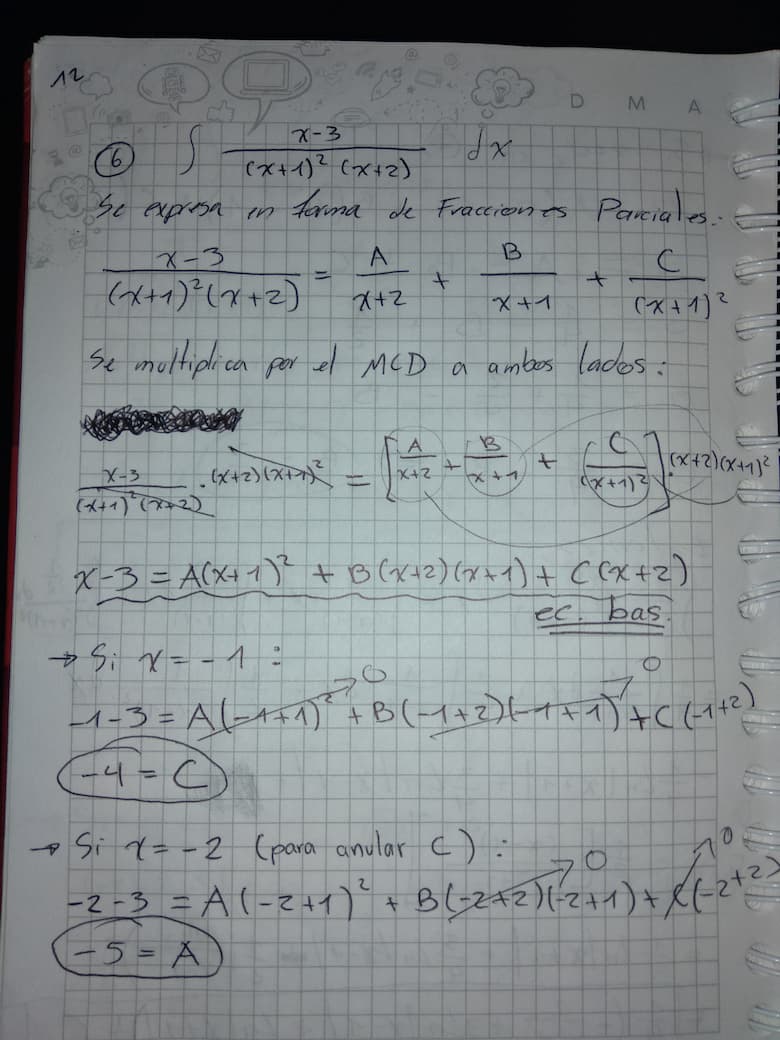 12
D M A
⑥ ∫ x-3 / (x+1)² (x+2) dx
Se expresa en forma de Fracciones Parciales:
x-3 / (x+1)²(x+2) = A / x+2 + B / x+1 + C / (x+1)²
Se multiplica por el MCD a ambos lados:
x-3 / (x+1)²(x+2) · (x+2)(x+1)² = [A / x+2 + B / x+1 + C / (x+1)²] · (x+2)(x+1)²
x-3 = A(x+1)² + B(x+2)(x+1) + C(x+2)
ec. bas.
→ Si x = -1 :
-1-3 = A(-1+1)² → 0 + B(-1+2)(-1+1) → 0 + C(-1+2)
-4 = C
→ Si x = -2 (para anular C) :
-2-3 = A(-2+1)² + B(-2+2)(-2+1) → 0 + C(-2+2) → 0
-5 = A